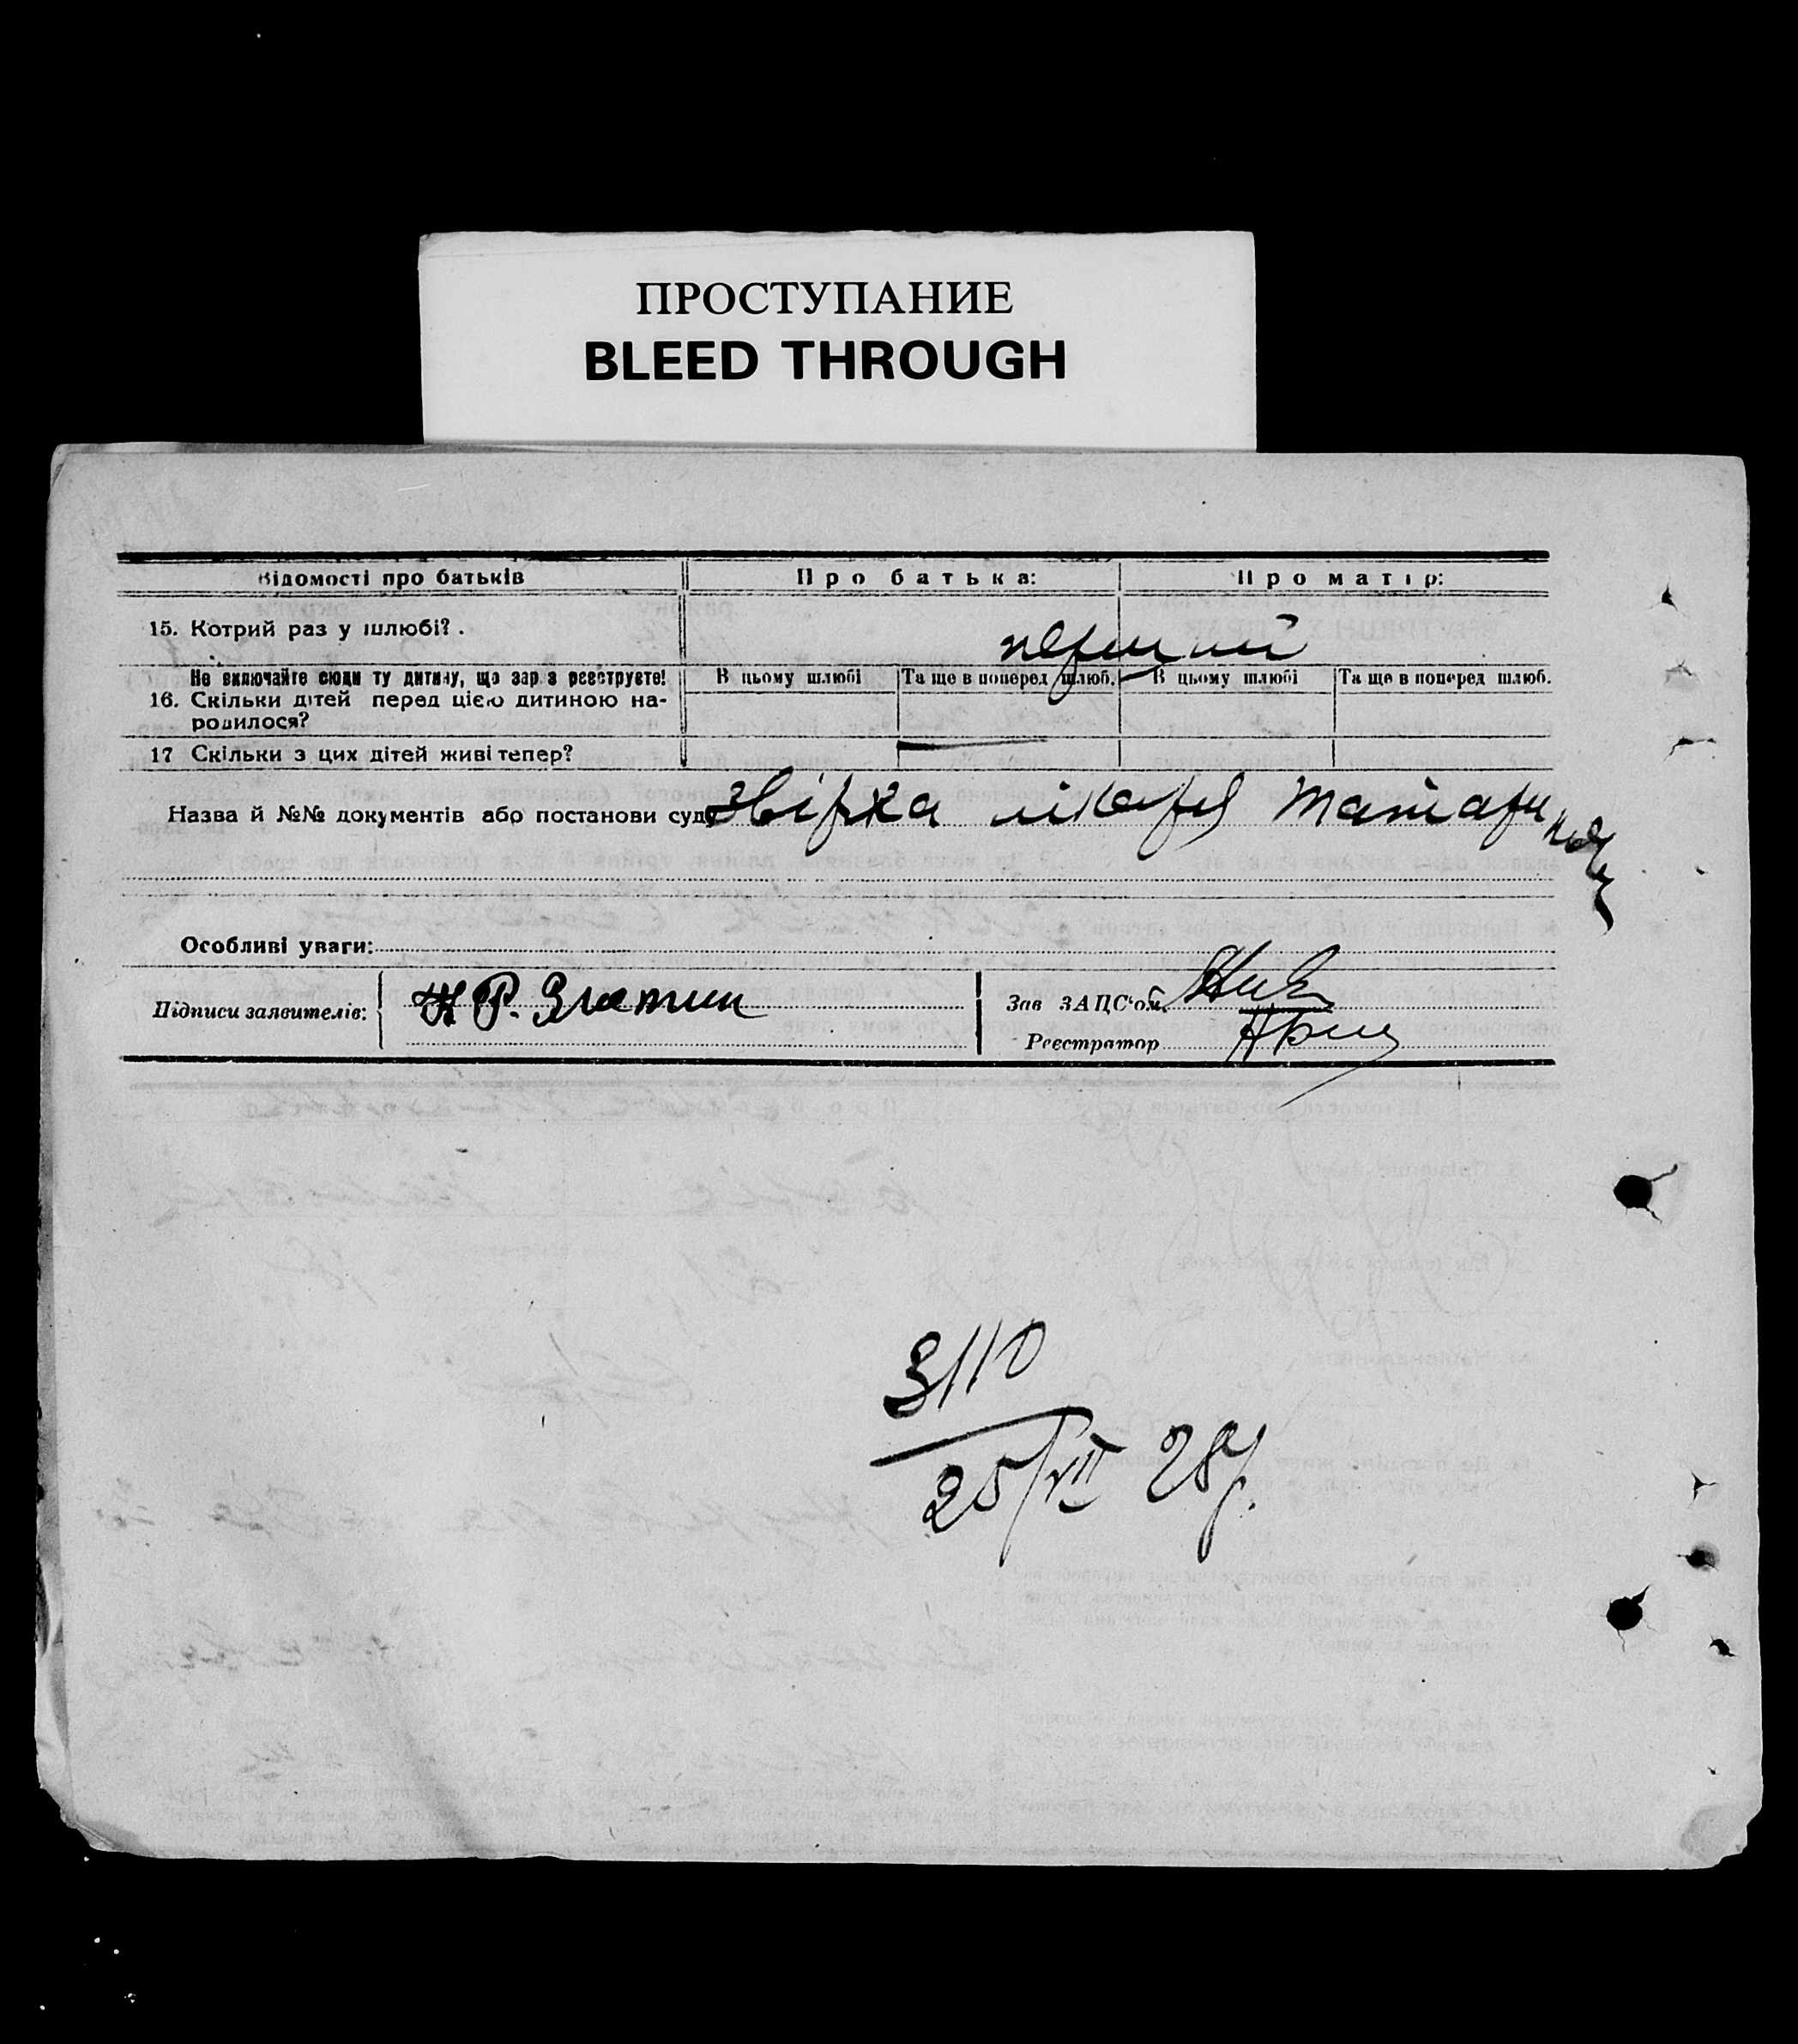 ПРОСТУПАНИЕ
BLEED THROUGH
Відомості про батьків Про батька: Про матір:
15. Котрий раз у шлюбі?. перший
Не включайте сюди ту дитину, що зараз реєструєте! В цьому шлюбі Та ще в поперед шлюб. В цьому шлюбі Та ще в поперед шлюб.
16. Скільки дітей перед цією дитиною на-
родилося?
17 Скільки з цих дітей живі тепер?
Назва й №№ документів або постанови суду звірка лікаря
Особливі уваги:
Підписи заявителів: Р. Златин
Зав ЗАЦС'ом
Реєстратор
3110
25/VII 28р.